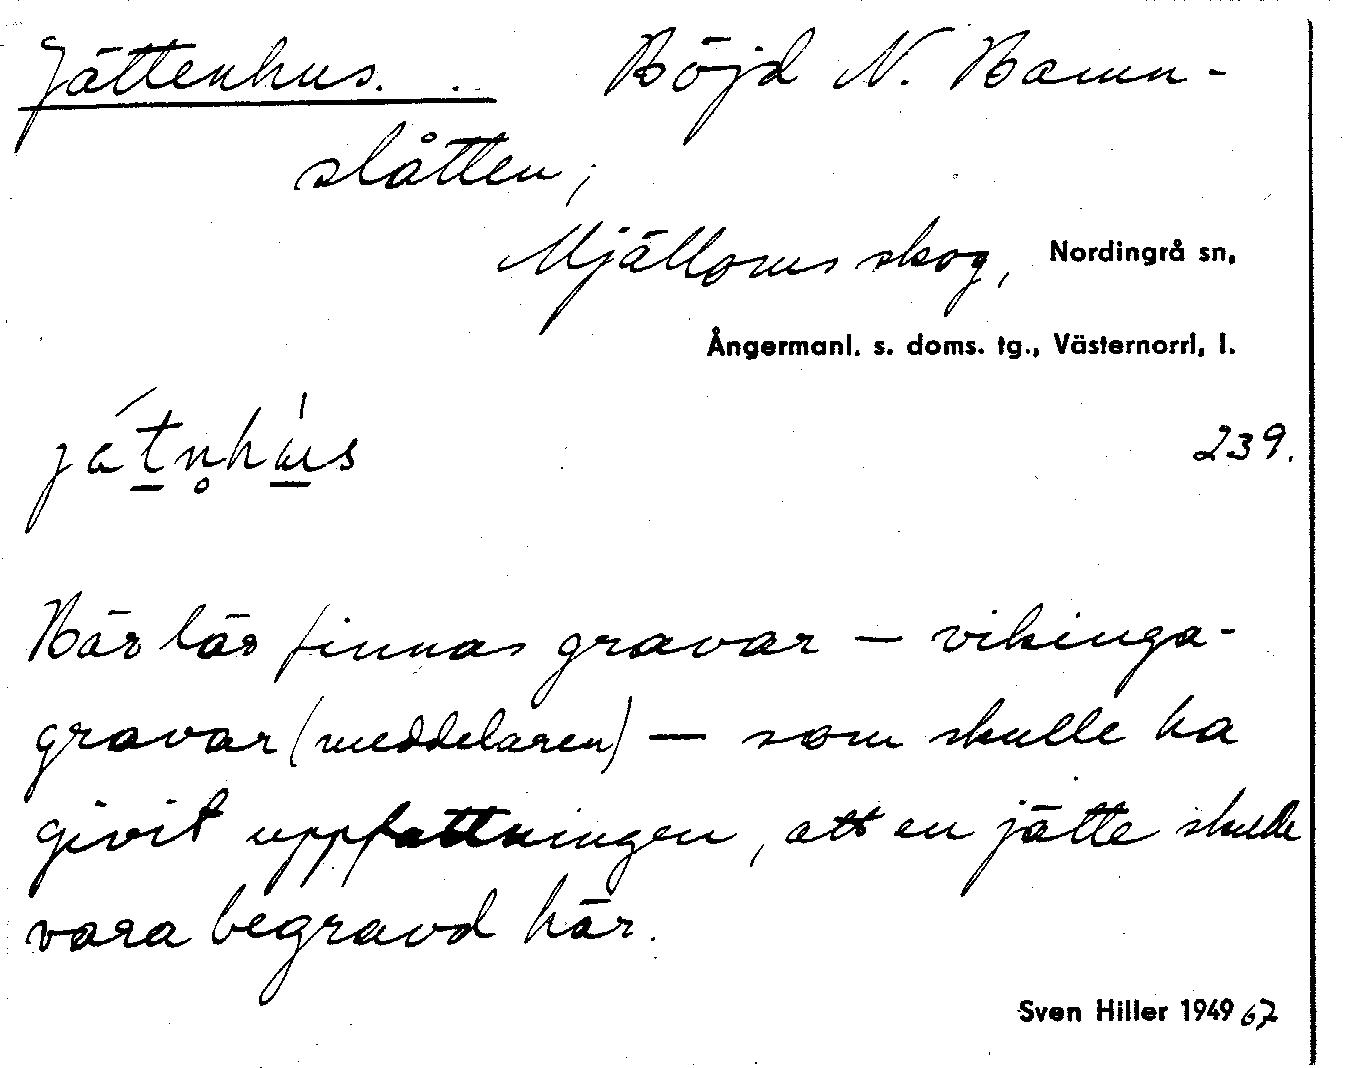 Jättenhus. Höjd N. Hamn-
slåtten,
Mjälloms skog, Nordingrå sn,
Ångermanl. s. doms. tg., Västernorrl. l.
játn̥hús 239.
Här lär finnas gravar – vikinga-
gravar (meddelaren) – som skulle ha
givit uppfattningen, att en jätte skulle
vara begravd här.
Sven Hiller 1949 67